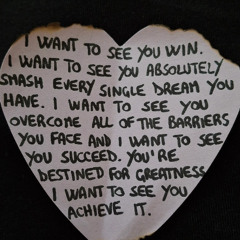 I WANT TO SEE YOU WIN.
I WANT TO SEE YOU ABSOLUTELY
SMASH EVERY SINGLE DREAM YOU
HAVE. I WANT TO SEE YOU
OVERCOME ALL OF THE BARRIERS
YOU FACE AND I WANT TO SEE
YOU SUCCEED. YOU'RE
DESTINED FOR GREATNESS
I WANT TO SEE YOU
ACHIEVE IT.